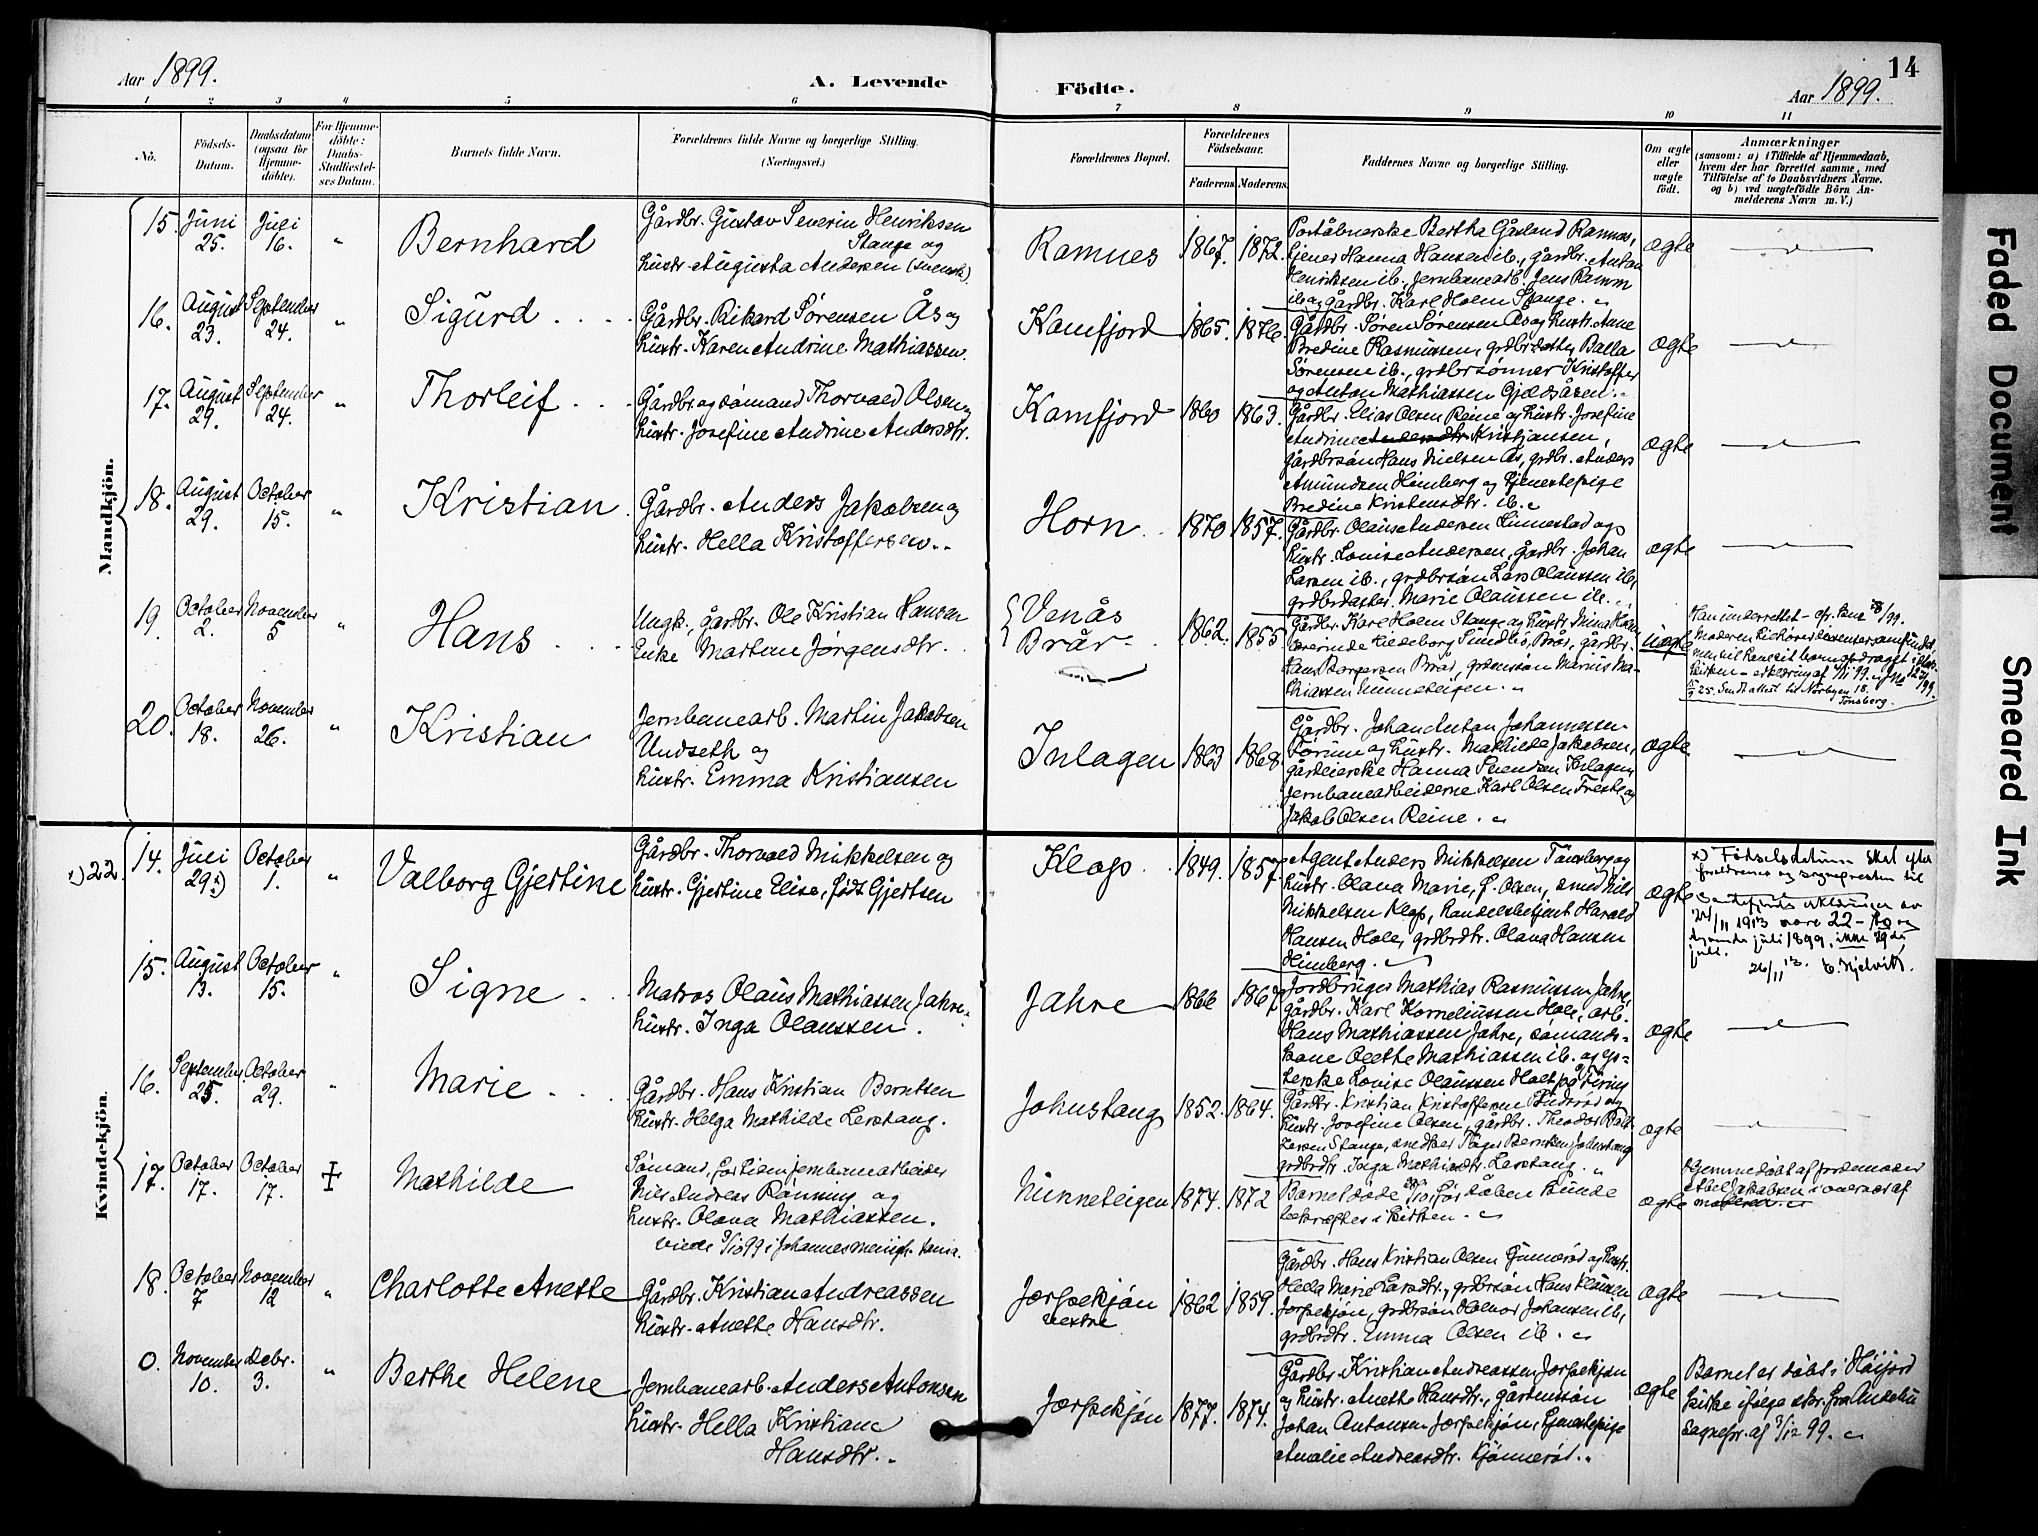 Aar 1899.
A. Levende
Födte.
14
Aar 1899.
1 2 3 4 5 6 7 8 9 10 11
No.
Födsels-
Datum.
Daabsdatum
(ogsaa for
Hjemme-
döbte).
For Hjemme-
döbte:
Daabs-
Stadfæstel-
ses Datum.
Barnets fulde Navn.
Forældrenes fulde Navne og borgerlige Stilling.
(Næringsvei.)
Forældrenes Bopæl.
Forældrenes
Födselsaar.
Faderens. Moderens.
Faddernes Navne og borgerlige Stilling.
Om ægte
eller
uægte
födt.
Anmærkninger
(saasom: a) i Tilfælde af Hjemmedaab,
hvem der har forrettet samme, med
Tilföielse af to Daabsvidners Navne.
og b) ved uægtefödte Börn An-
melderens Navn m. V.)
Mandkjön.
15. Juni 25. Juli 16. " Bernhard
Gårdbr. Gustav Severin Henriksen
Stange og
hustr. Augusta Andersen (svensk).
Ramnes 1867. 1872.
Poståbnerske Bertha Gåsland Ramnes,
tjener Hanna Hansen ib., gårdbr. Anton
Henriksen ib., jernbanearb. Jens Ramm
ib og gårdbr. Karl Holm Stange.
ægte
16. August 23. September 24. " Sigurd
Gårdbr. Rikard Sørensen Ås og
hustr. Karen Andrine Mathiassen.
Kamfjord 1865. 1876.
Gårdbr. Søren Sørensen Ås og hustr. Anne
Bredine Rasmussen, grdbrdatter Balla
Sørensen ib., grdbrsønner Kristoffer
og Anton Mathiassen Gjelsåsen.
ægte
17. August 29. September 24. " Thorleif
Gårdbr. og sømand Thorvald Olsen og
hustr. Josefine Andrine Andersdtr.
Kamfjord 1860 1863.
Gårdbr. Elias Olsen Reine og hustr. Josefine
Andrine Andersdtr. Kristjansen,
gårdbrsøn Hans Nielsen Ås, grdbr. Anders
Amundsen Himberg og tjenestepige
Bredine Kristensdtr. ib.
ægte
18. August 29. October 15. " Kristian
Gårdbr. Anders Jakobsen og
hustr. Hella Kristoffersen.
Horn 1870 1857.
Gårdbr. Olaus Andersen Linnestad og
hustr. Lovise Andersen, gårdbr. Johan
Larsen ib., grdbrsøn Lars Olaussen ib,
grdbrdatter Marie Olaussen ib.
ægte
19. October 2. November 5 " Hans
Ungk., gårdbr. Ole Kristian Hansen
Enke Marthea Jørgensdtr.
Venås
Brår
1862. 1855
Gårdbr. Karl Holm Stange og hustr. Mina Holm
lærerinde Lideborg Sundbø, Brås, gårdbr.
Hans Borgersen Brås, grdmssøn Marius Ma-
thiassen Nunneteigen.
uægte
Tønsberg.
20. October 18. November 26. " Kristian
Jernbanearb. Martin Jakobsen
Undseth og
hustr. Emma Kristiansen
Inlagen 1863 1868.
Gårdbr. Johan Anton Johannessen
Sørum og hustr. Mathilde Jakobsen,
gårdeierske Hanna Svendsen Inlagen,
jernbanearbeiderne Karl Olsen Freste og
Jakob Olsen Reine.
ægte
Kvindekjön.
x) 22. 14. Juli 29 x) October 1. " Valborg Gjertine
Gårdbr. Thorvald Mikkelsen og
hustr. Gjertine Elise, født Gjertsen
Klop 1849. 1857
Agent Anders Mikkelsen Tønsberg og
hustr. Olava Marie, f. Olsen, smed Nils
Mikkelsen Klop, handelsbetjent Harald
Hansen Hole, grdbrdtr. Olava Hansen
Himberg.
ægte
x) Fødselsdatum skal efter
forældrenes og sogneprestens til
Sandefjords erklæringer av
24/11 1913 være 22 – to og
tyvende juli 1899, ikke 29de
juli.
26/11 13. E. Kjelvik.
15. August 13. October 15. " Signe
Matros Olaus Mathiassen Jahre,
hustr. Inga Olaussen.
Jahre 1866 1867
Jordbruger Mathias Rasmussen Jahre,
gårdbr. Karl Korneliussen Hole, arb.
Hans Mathiassen Jahre, sømands-
kone Olette Mathiassen ib. og
Lovise Olaussen
ægte
16. September 25. October 29. " Marie
Gårdbr. Hans Kristian Berntsen
hustr. Helga Mathilde Lerstang.
Johnstang 1852. 1864.
Gårdbr. Kristian Kristoffersen og
hustr. Josefine Olsen, gårdbr. Theodor
Larsen Stange, Berntsen Johnstang
grdbrdtr. Inga Mathisdtr. Lerstang.
ægte
17. October 17. October 17. ‡ Mathilde
Sømand, for tiden jernbanearbeider
Nils Andreas Rønning og
hustr. Olava Mathiassen.
viede 9/10 99 i Johannes menigh.
Nunneteigen 1874. 1872
Barnet døde før dåben kunde
bekræftes i kirken.
ægte
Hjemmedøbt af jordemoder
Jakobsen i overvær af
moderen.
18. October 7 November 12 " Charlotte Anette
Gårdbr. Kristian Andreassen
hustr. Anette Hansdtr.
Jorpekjøn
vestre
1862 1859.
Gårdbr. Hans Kristian Olsen Gunnerød og hustr.
Hella Marie Larsdtr., grdbrsøn Hans Klausen
Jorpekjøn, grdbrsøn Halvor Johansen ib,
grdbrdtr. Emma Olsen ib.
ægte
0. November 10. Debr. 3. " Berthe Helene
Jernbanearb. Anders Antonsen
hustr. Hella Kristiane
Hansdtr.
Jorpekjøn 1877. 1874.
Gårdbr. Kristian Andreassen Jorpekjøn
og hustr. Anette Hansdtr., gårdmssøn
Johan Antonsen Jorpekjøn, tjenestepige
Amalie Andreasdtr. Kjønnerød.
ægte
Barnet er døbt i Høijord
kirke ifølge skr. fra Andebu
sognepr. af 3/12 99.
Faded Document
Smeared Ink